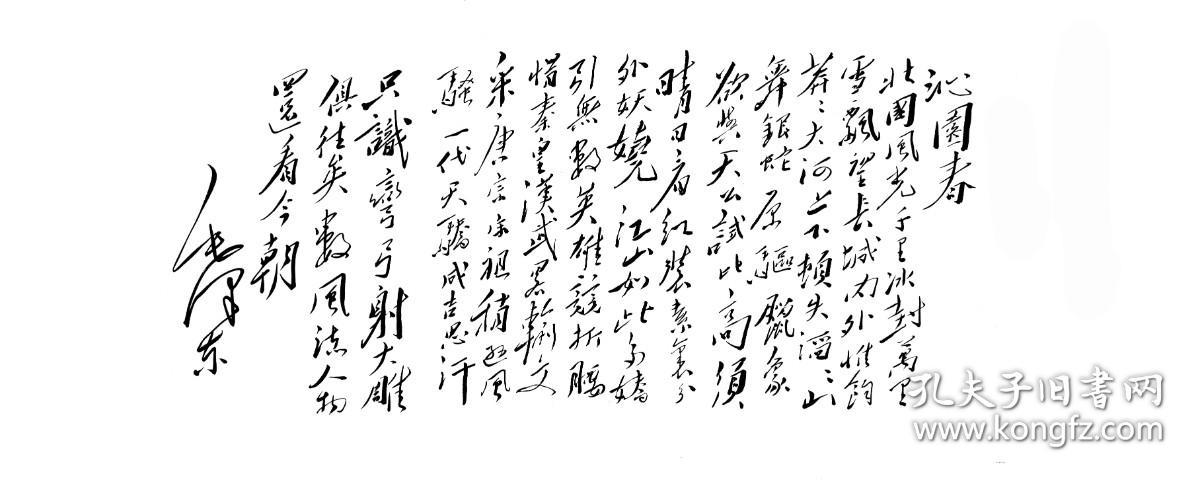 沁園春
北國風光千里冰封萬里
雪飄望長城內外惟餘
莽〻大河上下頓失滔〻山
舞銀蛇原驅臘象
欲與天公試比高須
晴日看紅裝素裹分
外妖嬈江山如此多嬌
引無數英雄競折腰
惜秦皇漢武畧輸文
采唐宗宋祖稍遜風
騷一代天驕成吉思汗
只識彎弓射大雕
俱往矣數風流人物
還看今朝
毛澤東
孔夫子旧书网
www.kongfz.com